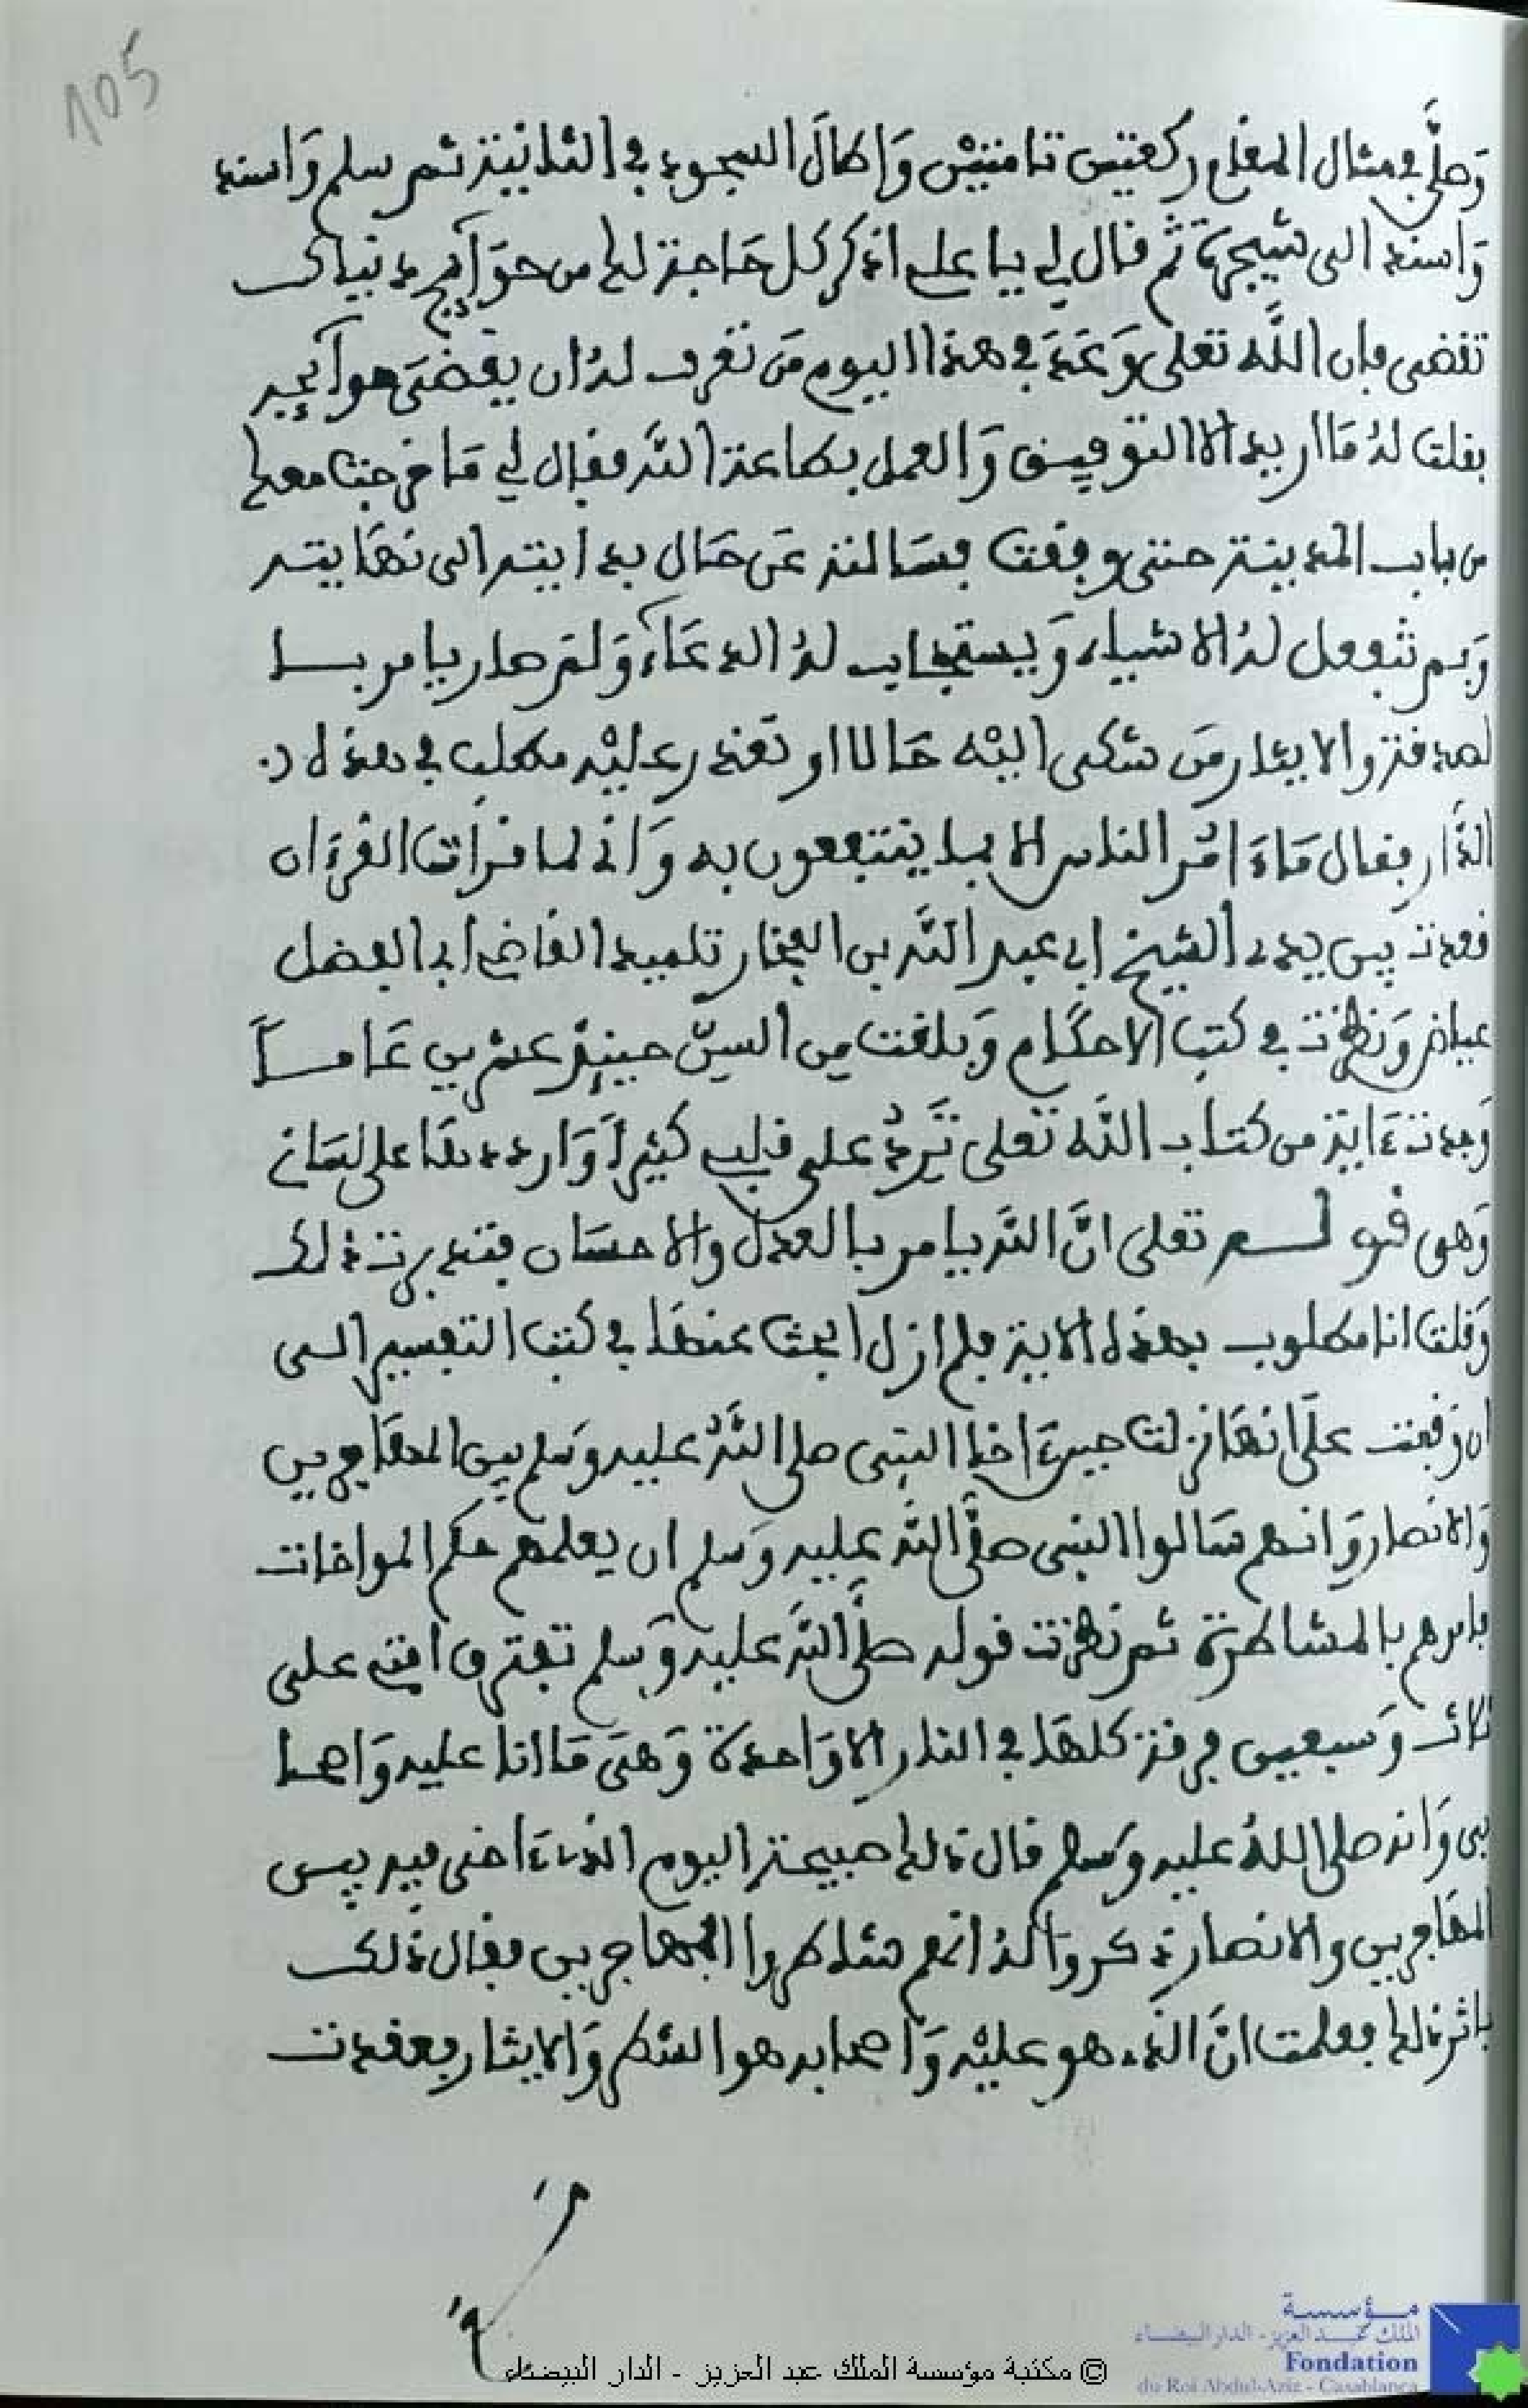 105
وَصلَّى في مثال المقلع ركعتين تامتيْن وَاطالَ السجود في الثانية ثم سلم وَاسند
وَاسند الى شيجرة ثم قال لي يا علي اذكر كل حَاجة لك من حوَآيج دنياك
تقضى فان اللَّه تعلى وَعَدَ في هذا اليوم مَن تعرف لهُ ان يقضىَ حوآيجه
فقلت لهُ مَا اريد الا التوفيق وَالعمل بطاعة اللَّه فقال لي مَا خرجت معك
من باب المدينة حتى وقفت فسَالته عَن حَال بدايته الى نهَايته
وَبم تنفعل لهُ الاشياء وَيستجاب لهُ الدعَآء وَلمَ صار يامر بـا
لصدقة والايثار مَن شكى اليْه حَالا او تعذر عليْه مطلب في هذه
الدَّار فقال مَا ءَامُر الناس الا بما ينتفعون به وَانى لما قرات القرءَان
قعدت بين يدى الشيخ ابى عبد اللَّه بن الفخار تلميد القاضي ابى الفضل
عياض وَنظرت في كتب الاحكَام وَبلغت من السنّ حينئذ عشرين عَامـاً
وَجدت ءَاية من كتاب اللَّه تعلى تَرِدُ على قلبى كثيراً وَارددهَا على لسَانى
وَهى قولـــه تعلى انَّ اللَّه يامر بالعدل والاحسَان فتدبرت ذلك
وَقلت انا مطلوب بهذه الاية فلم ازل ابحث عنهَا في كتب التفسير الى
ان وَقفت علَى انهَا نزلت حين ءَاخا النبى صلى اللَّهُ عليه وَسلم بين المهَاجرين
وَالانصار وَانهم سَالوا النبى صلَّى اللَّه عليه وَسلم ان يعلمهم حكم المواخات
فامرهم بالمشاطرة ثم نظرت قوله صلَّى اللَّه عليه وَسلم تفترق امتى على
ثلاث وَسبعين فرقة كلهَا في النار الا وَاحدة وَهىَ مَا انا عليه وَاصحا
بى وَانه صلى اللهُ عليه وَسلم قال ذلك صبيحة اليوم الذى ءَاخى فيه بين
المهَاجرين والانصار ذكروا لهُ انهم شاطروا المهاجرين فقال ذلك
باثر ذلك فعلمت انَّ الذى هو عليْه وَاصحابه هو الشطر وَالايثار فعقدت
مؤسسة
الملك عبد العزيز - الدار البيضاء
Fondation
du Roi Abdul-Aziz - Casablanca
© مكتبة مؤسسة الملك عبد العزيز - الدار البيضاء